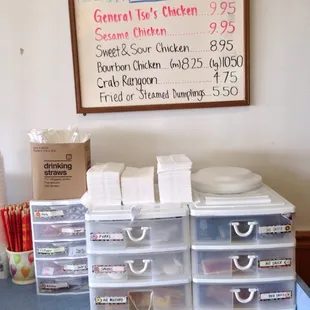 General Tso's Chicken 9.95
Sesame Chicken 9.95
Sweet & Sour Chicken 8.95
Bourbon Chicken (m) 8.25 (lg) 10.50
Crab Rangoon 4.75
Fried or Steamed Dumplings 5.50
drinking
straws